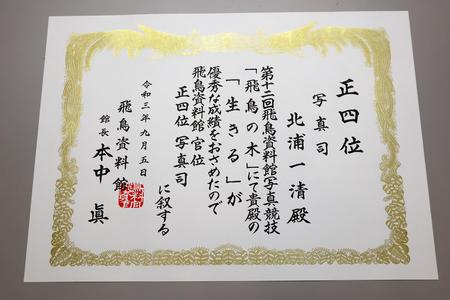 正四位
写真司
北浦一清殿
第十二回飛鳥資料館写真競技
「飛鳥の木」にて貴殿の
「生きる」が
優秀な成績をおさめたので
飛鳥資料館官位
正四位 写真司
に叙する
令和三年九月五日
飛鳥資料館
館長 本中 眞